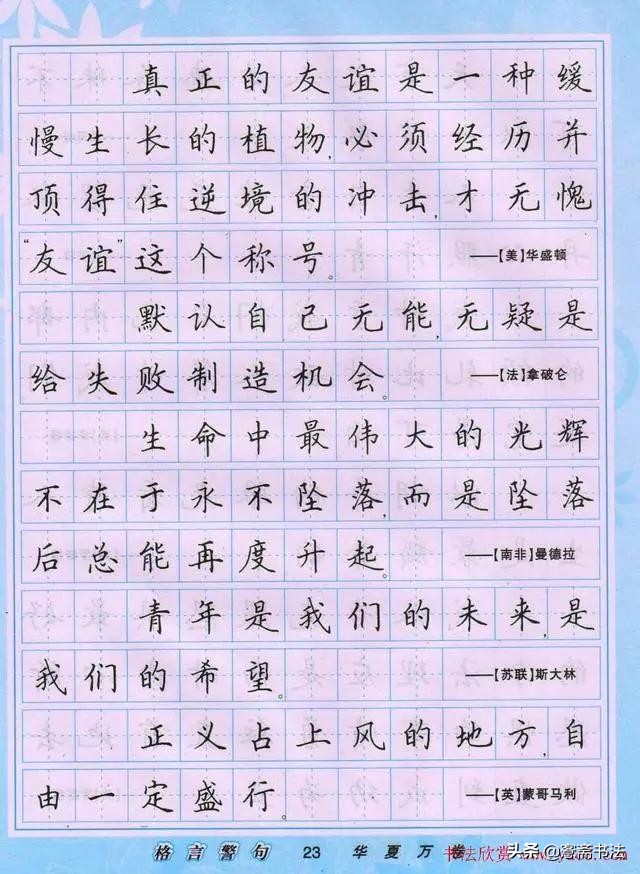 真正的友谊是一种缓
慢生长的植物,必须经历并
顶得住逆境的冲击,才无愧
“友谊”这个称号。 ——【美】华盛顿
默认自己无能,无疑是
给失败制造机会。 ——【法】拿破仑
生命中最伟大的光辉
不在于永不坠落,而是坠落
后总能再度升起。 ——【南非】曼德拉
青年是我们的未来,是
我们的希望。 ——【苏联】斯大林
正义占上风的地方,自
由一定盛行。 ——【英】蒙哥马利
格言警句 23 华夏万卷
书法欣赏
头条@鸾斋书法